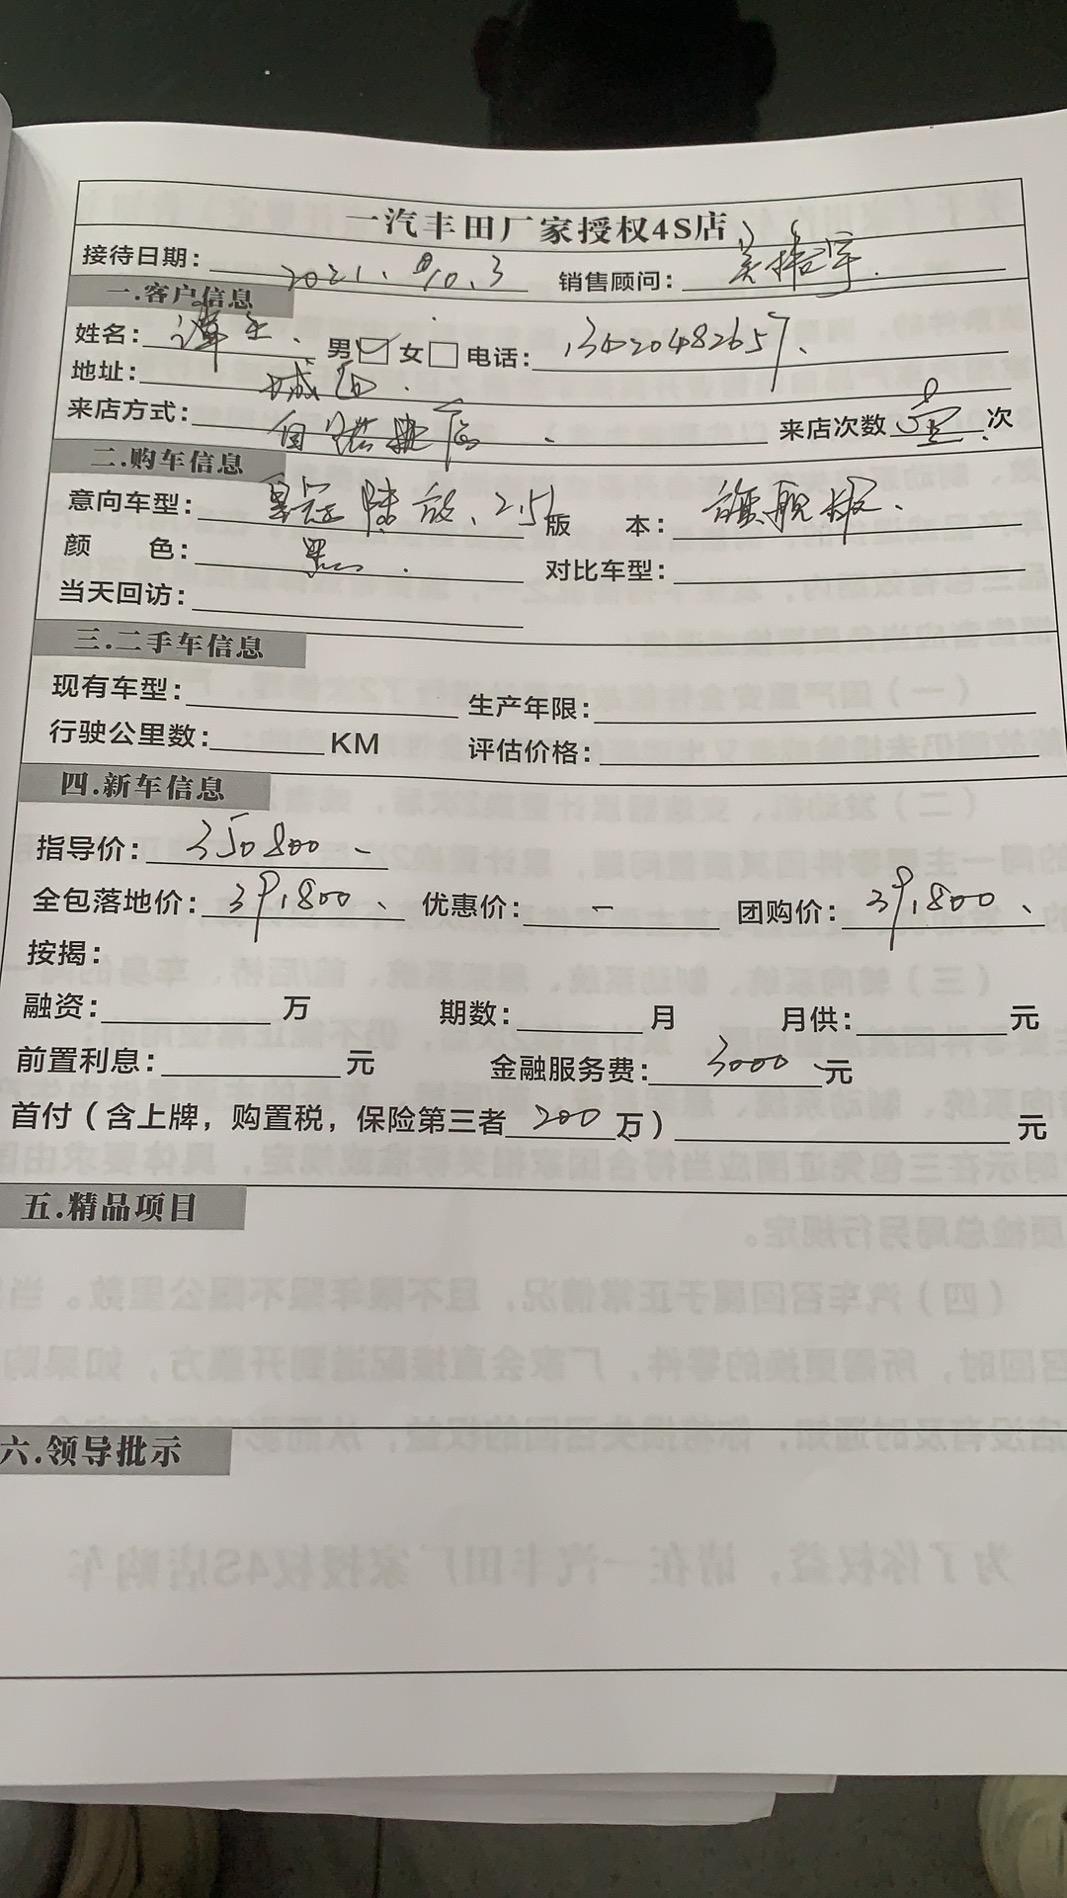 一汽丰田厂家授权4S店
接待日期: 2021.10.3 销售顾问:
一.客户信息
姓名: 谭 男☑ 女□ 电话: 13020482657
地址: 城
来店方式: 自 店 来店次数 壹 次
二.购车信息
意向车型: 皇冠陆放 2.5L 版 本: 旗舰版
颜 色: 黑 对比车型:
当天回访:
三.二手车信息
现有车型: 生产年限:
行驶公里数: KM 评估价格:
四.新车信息
指导价: 350800
全包落地价: 391800 优惠价: — 团购价: 391800
按揭:
融资: 万 期数: 月 月供: 元
前置利息: 元 金融服务费: 3000 元
首付(含上牌,购置税,保险第三者 200 万) 元
五.精品项目
六.领导批示